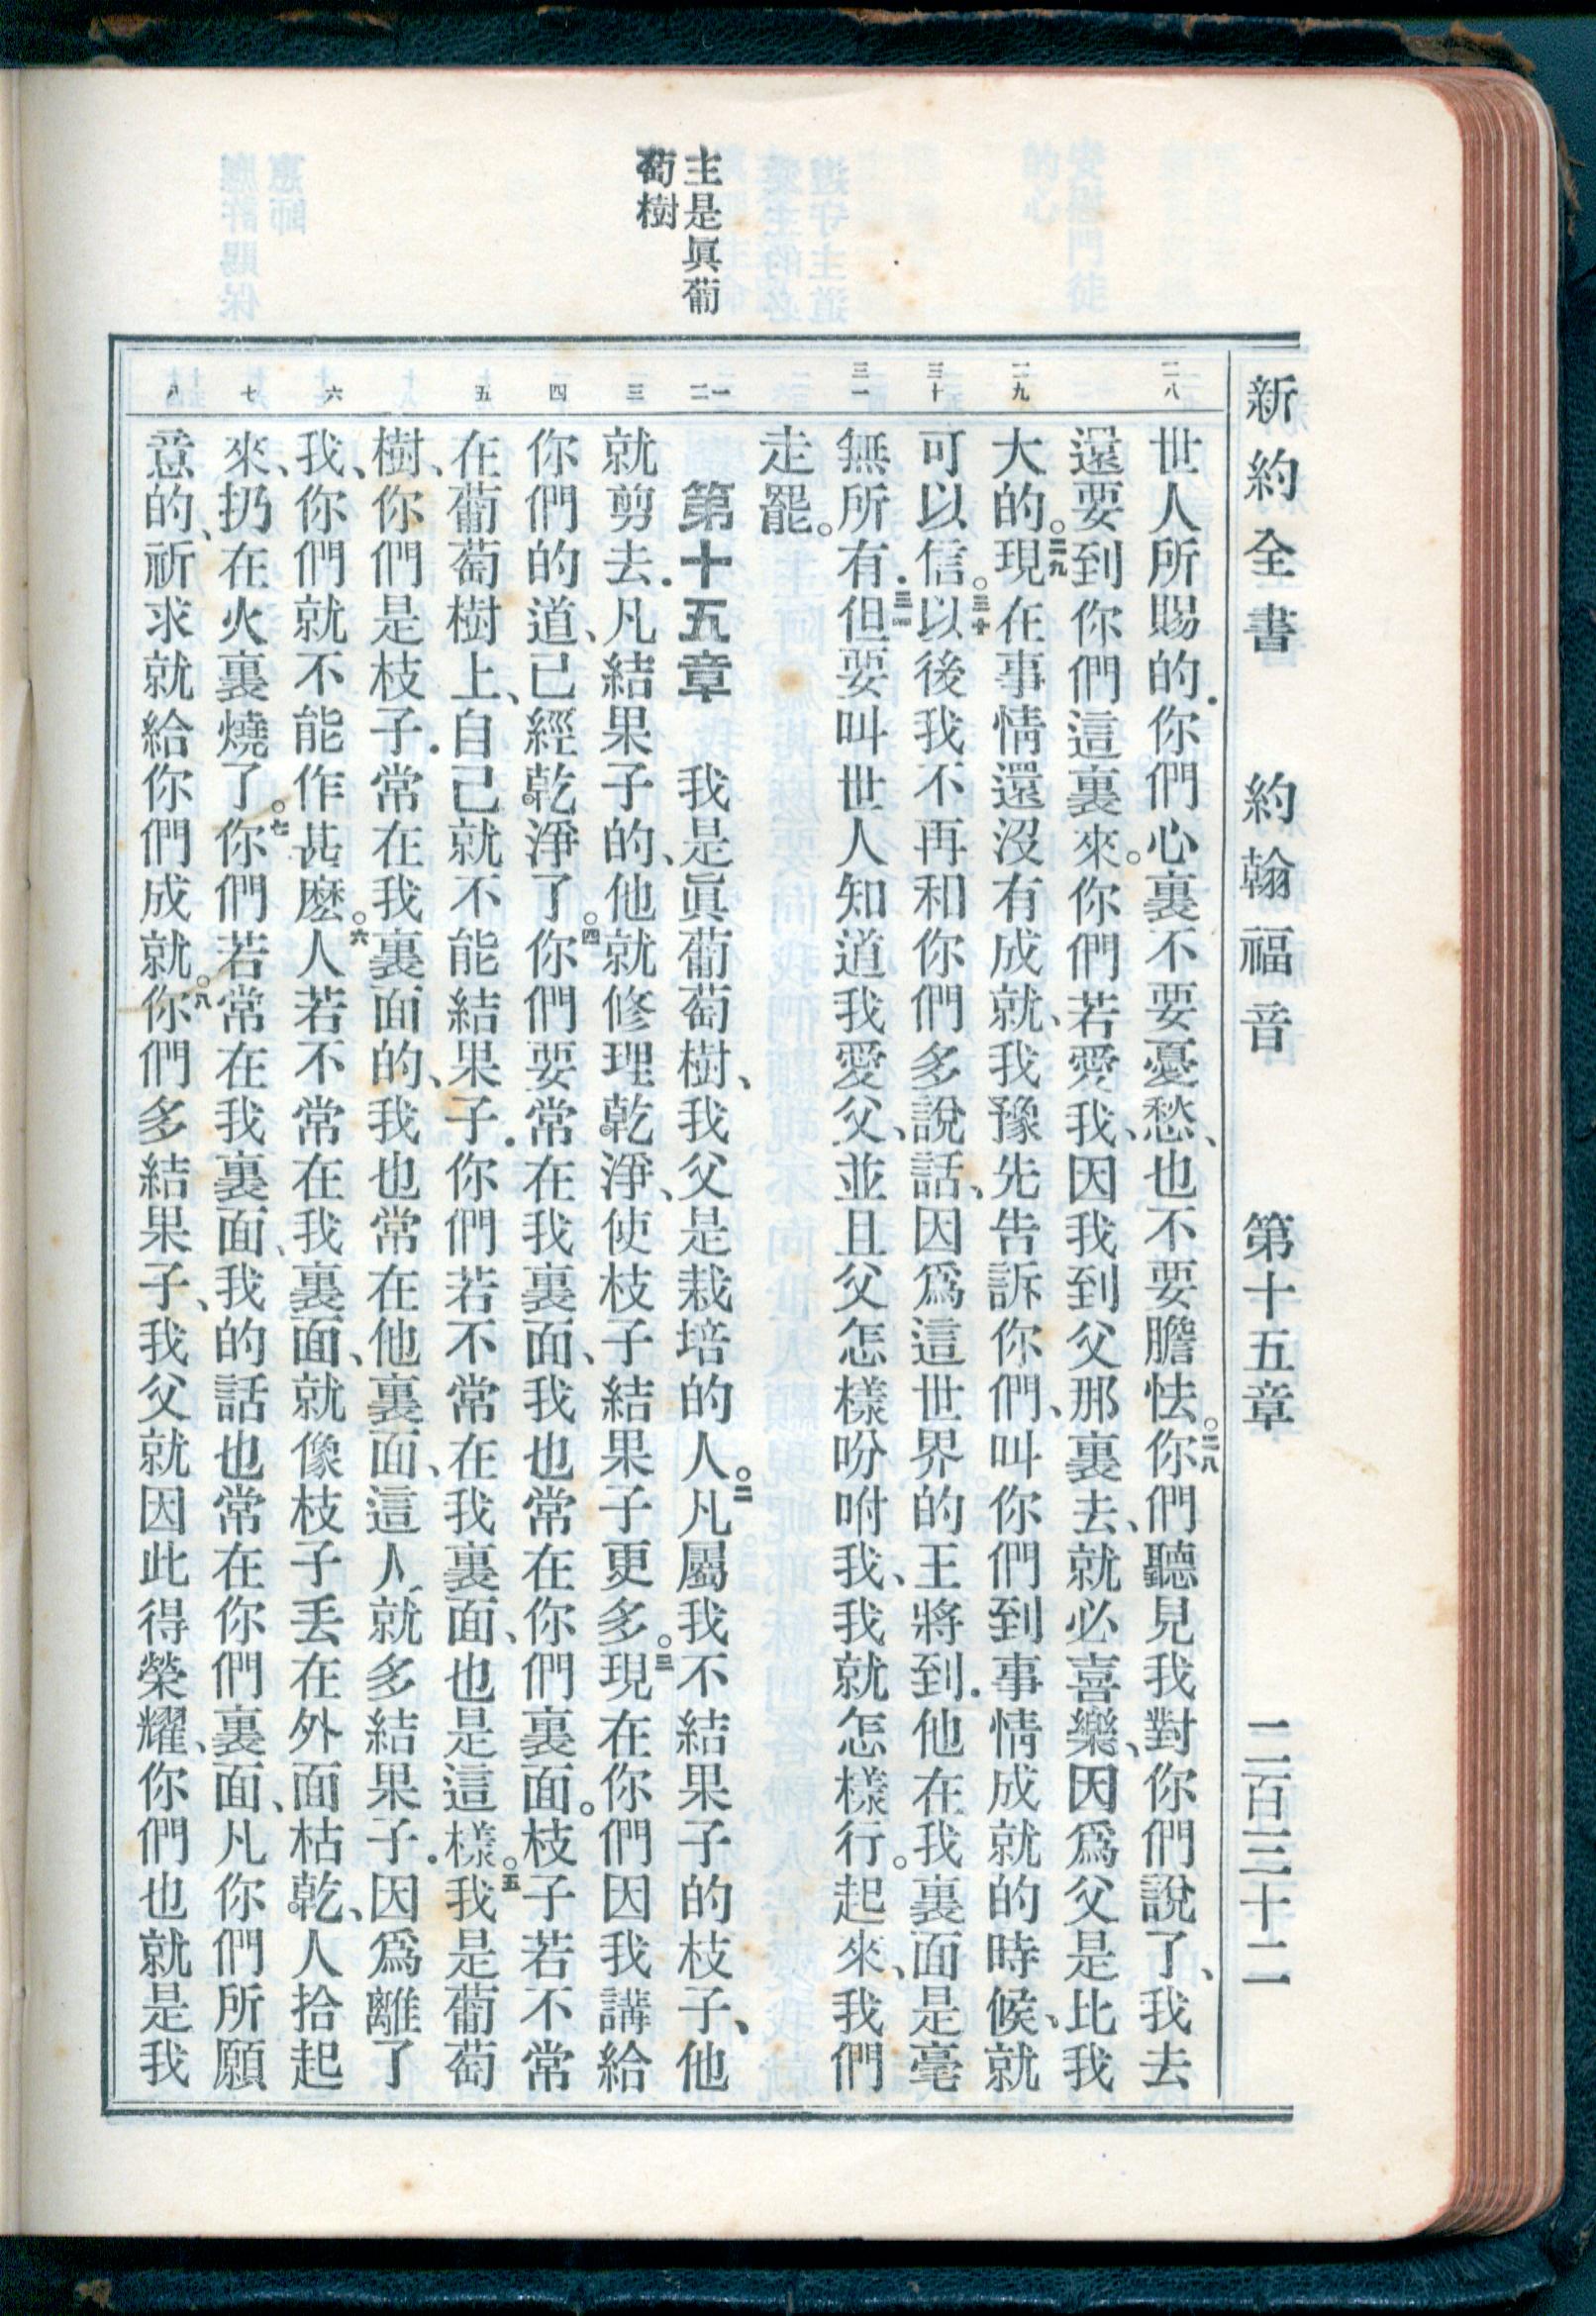 新約全書　約翰福音　第十五章　二百三十二
主是眞葡
萄樹
二八
二九
三十
三一
一
二
三
四
五
六
七
八
世人所賜的．你們心裏不要憂愁、也不要膽怯。二八你們聽見我對你們說了、我去
還要到你們這裏來。你們若愛我、因我到父那裏去、就必喜樂、因爲父是比我
大的。二九現在事情還沒有成就、我豫先告訴你們、叫你們到事情成就的時候、就
可以信。三十以後我不再和你們多說話、因爲這世界的王將到．他在我裏面是毫
無所有．三一但要叫世人知道我愛父、並且父怎樣吩咐我、我就怎樣行。起來、我們
走罷。
第十五章　我是眞葡萄樹、我父是栽培的人。二凡屬我不結果子的枝子、他
就剪去．凡結果子的、他就修理乾淨、使枝子結果子更多。三現在你們因我講給
你們的道、已經乾淨了。四你們要常在我裏面、我也常在你們裏面。枝子若不常
在葡萄樹上、自己就不能結果子．你們若不常在我裏面、也是這樣。五我是葡萄
樹、你們是枝子．常在我裏面的、我也常在他裏面、這人就多結果子．因爲離了
我、你們就不能作甚麽。六人若不常在我裏面、就像枝子丢在外面枯乾、人拾起
來、扔在火裏燒了。七你們若常在我裏面、我的話也常在你們裏面、凡你們所願
意的、祈求就給你們成就。八你們多結果子、我父就因此得榮耀、你們也就是我